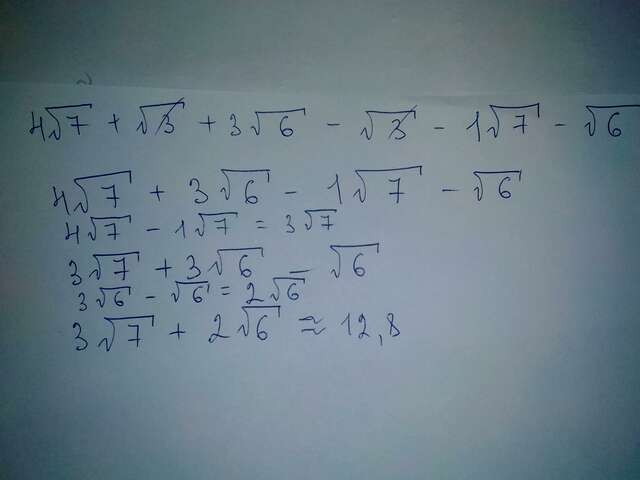 4√7 + √3 + 3√6 - √3 - 1√7 - √6
4√7 + 3√6 - 1√7 - √6
4√7 - 1√7 = 3√7
3√7 + 3√6 - √6
3√6 - √6 = 2√6
3√7 + 2√6 ≈ 12,8